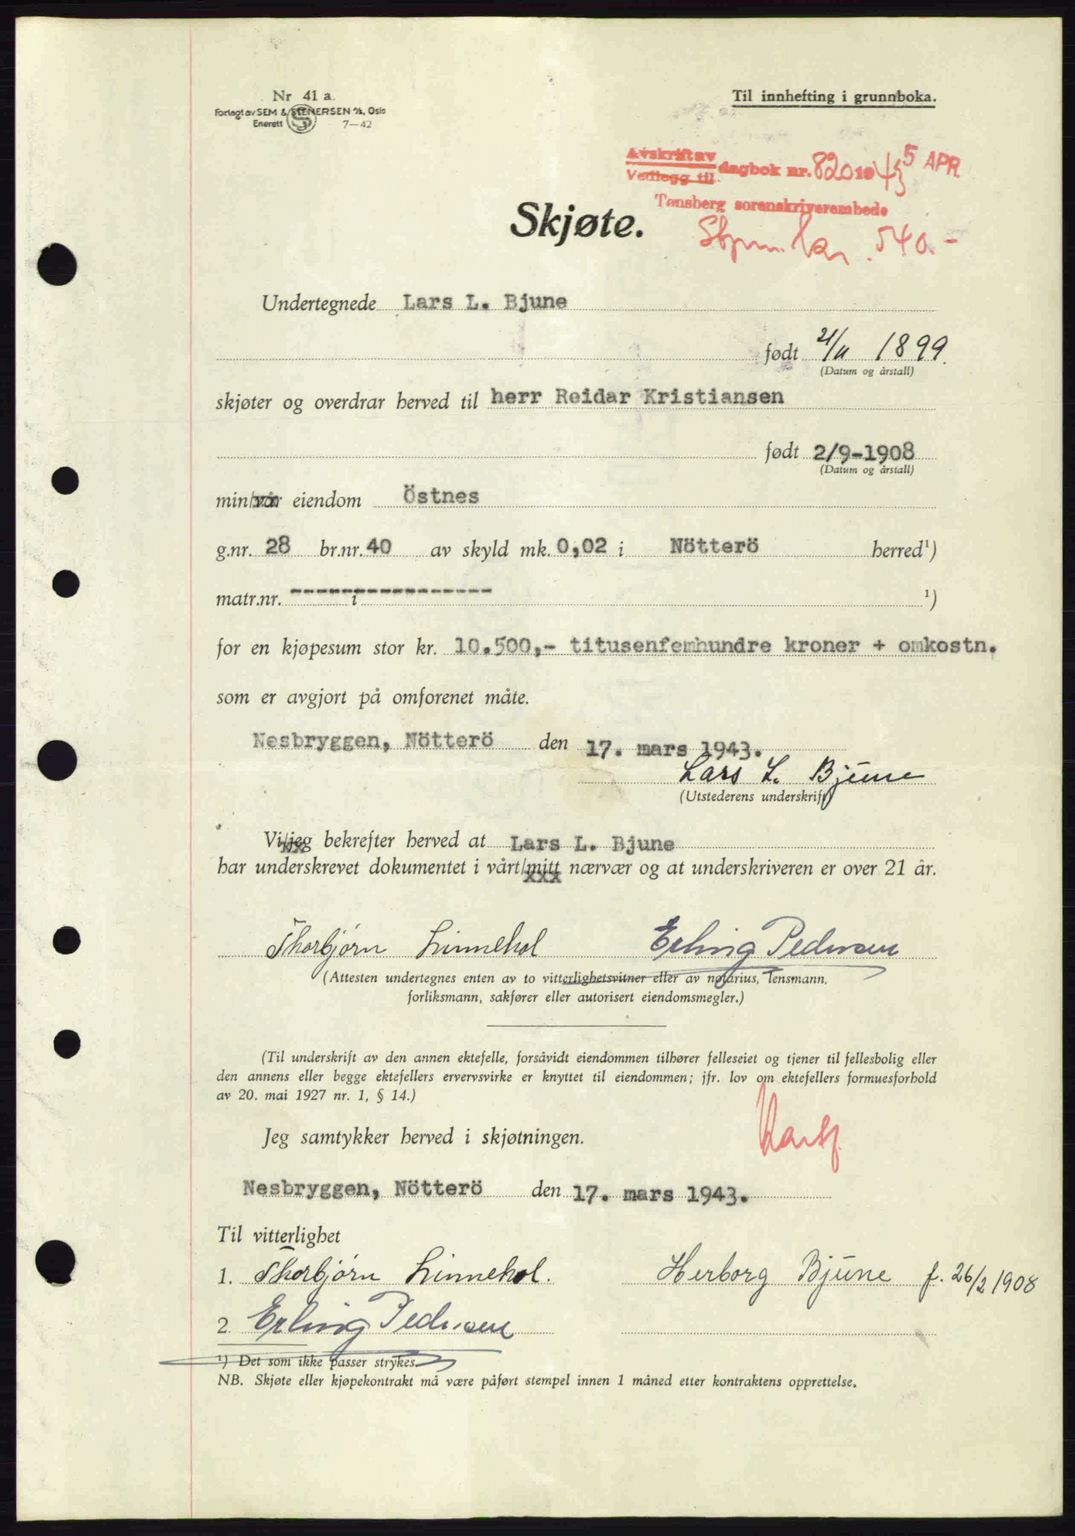 Nr 41 a.
Forlagt av SEM & STENERSEN A/S, Oslo
Enerett 7—42
Til innhefting i grunnboka.
Avskrift av
Vedlegg til dagbok nr. 820 1943 5 APR.
Tønsberg sorenskriverembede
540.-
Skjøte.
Undertegnede Lars L. Bjune
født 21/11 1899.
(Datum og årstall)
skjøter og overdrar herved til herr Reidar Kristiansen
født 2/9-1908
(Datum og årstall)
min/vår eiendom Östnes
g.nr. 28 br.nr. 40 av skyld mk. 0,02 i Nötterö herred¹)
matr.nr. ---- i ---- ¹)
for en kjøpesum stor kr. 10.500,- titusenfemhundre kroner + omkostn.
som er avgjort på omforenet måte.
Nesbryggen, Nötterö den 17. mars 1943.
Lars L. Bjune
(Utstederens underskrift)
Vi/jeg bekrefter herved at Lars L. Bjune
har underskrevet dokumentet i vårt/mitt nærvær og at underskriveren er over 21 år.
Thorbjørn Linnehol Erling Pedersen
(Attesten undertegnes enten av to vitterlighetsvitner eller av notarius, lensmann,
forliksmann, sakfører eller autorisert eiendomsmegler.)
(Til underskrift av den annen ektefelle, forsåvidt eiendommen tilhører felleseiet og tjener til fellesbolig eller
den annens eller begge ektefellers ervervsvirke er knyttet til eiendommen; jfr. lov om ektefellers formuesforhold
av 20. mai 1927 nr. 1, § 14.)
Jeg samtykker herved i skjøtningen.
Nesbryggen, Nötterö den 17. mars 1943.
Til vitterlighet
1. Thorbjørn Linnehol. Herborg Bjune f. 26/2 1908
2. Erling Pedersen
¹) Det som ikke passer strykes.
NB. Skjøte eller kjøpekontrakt må være påført stempel innen 1 måned etter kontraktens opprettelse.